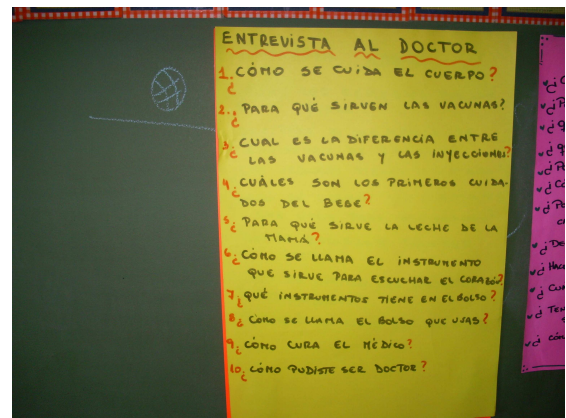 ENTREVISTA AL DOCTOR
1. ¿CÓMO SE CUIDA EL CUERPO?
2. ¿PARA QUÉ SIRVEN LAS VACUNAS?
3. ¿CUAL ES LA DIFERENCIA ENTRE
LAS VACUNAS Y LAS INYECCIONES?
4. ¿CUÁLES SON LOS PRIMEROS CUIDA-
DOS DEL BEBE?
5. ¿PARA QUÉ SIRVE LA LECHE DE LA
MAMÁ?
6. ¿CÓMO SE LLAMA EL INSTRUMENTO
QUE SIRVE PARA ESCUCHAR EL CORAZÓN?
7. ¿QUÉ INSTRUMENTOS TIENE EN EL BOLSO?
8. ¿CÓMO SE LLAMA EL BOLSO QUE USAS?
9. ¿CÓMO CURA EL MÉDICO?
10. ¿CÓMO PUDISTE SER DOCTOR?